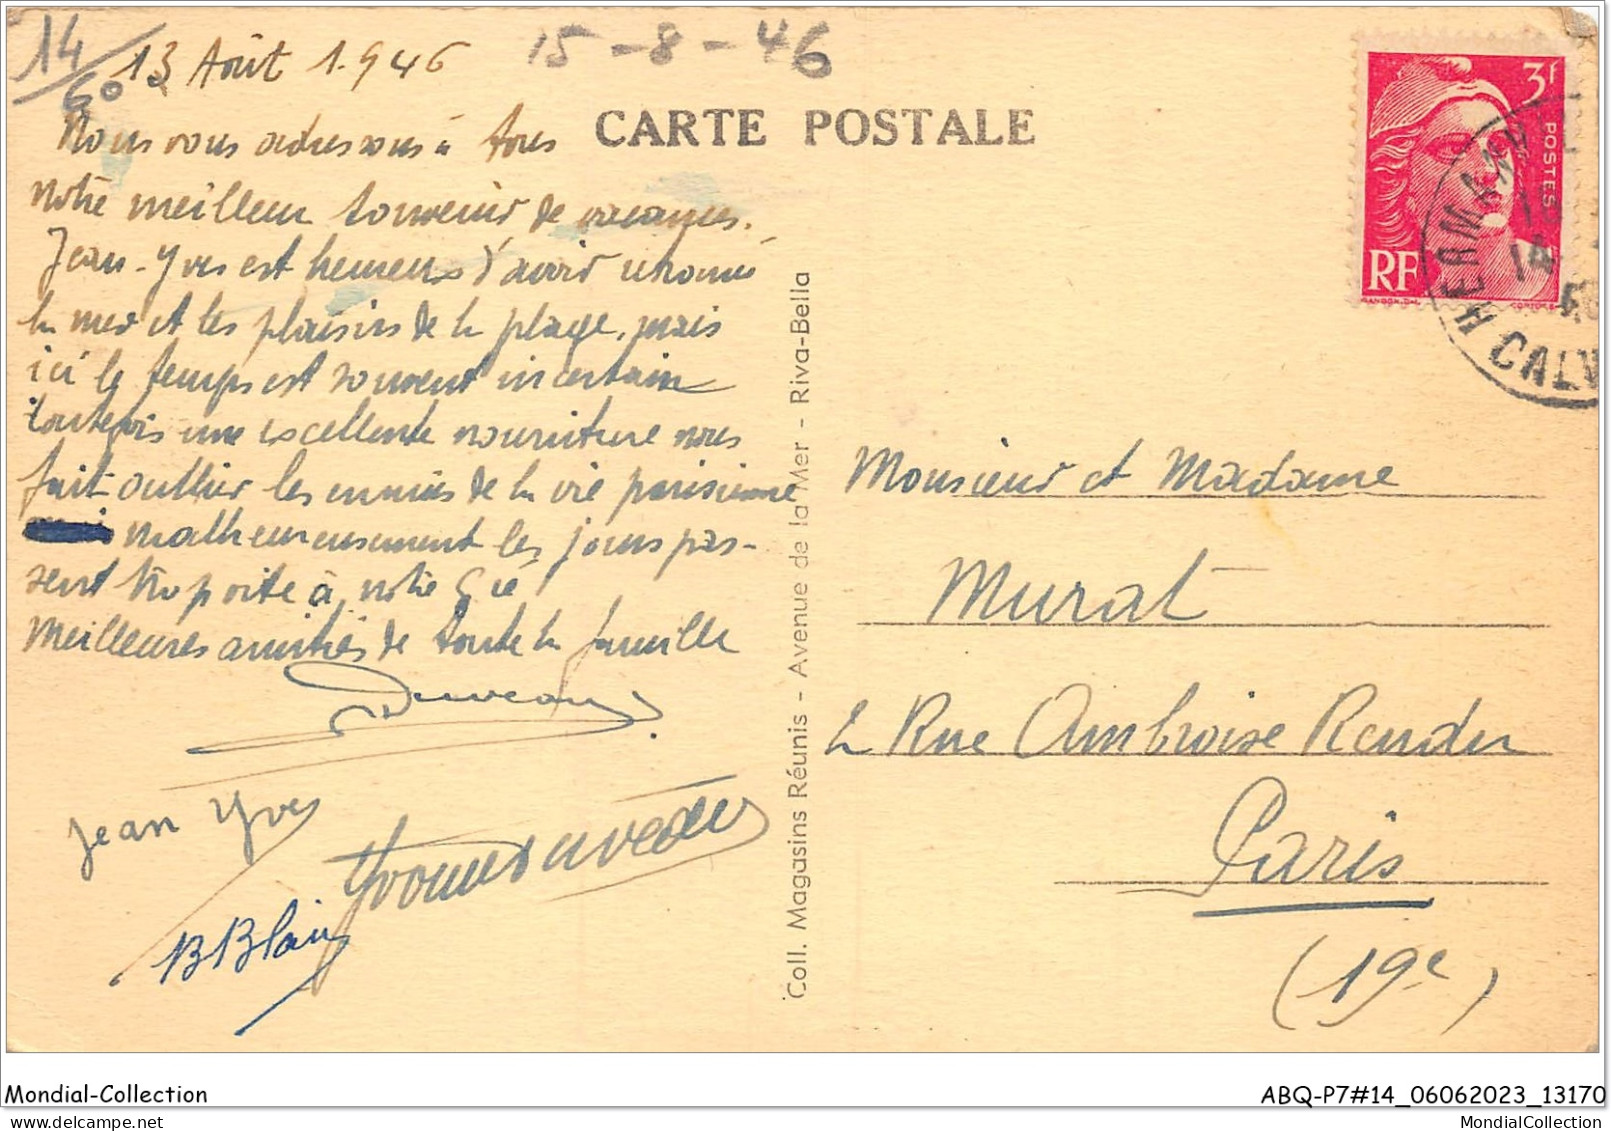 14/60
13 Août 1.946
15-8-46
CARTE POSTALE
Nous vous adressons à tous
notre meilleur souvenir de vacances.
Jean-Yves est heureux d'avoir retrouvé
la mer et les plaisirs de la plage, mais
ici le temps est souvent incertain
toutefois une excellente nourriture nous
fait oublier les ennuis de la vie parisienne
malheureusement les jours pas-
sent trop vite à notre gré
Meilleures amitiés de toute la famille
Duveau
Jean Yves
Yvonne Duveau
B Blain
Coll. Magasins Réunis - Avenue de la Mer - Riva-Bella
3f
POSTES
RF
GANDON.DEL.
HERMANV
14
CALV
Monsieur et Madame
Murat
2 Rue Ambroise Rendu
Paris
(19e)
Mondial-Collection
ABQ-P7#14_06062023_13170
MondialCollection